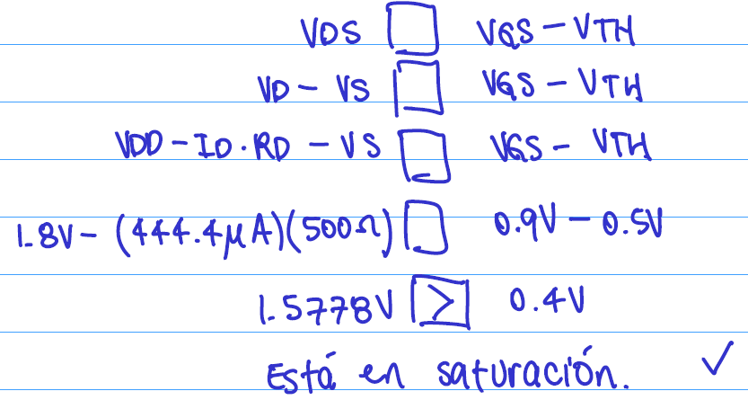 VDS □ VGS - VTH
VD - VS □ VGS - VTH
VDD - ID·RD - VS □ VGS - VTH
1.8V - (444.4μA)(500Ω) □ 0.9V - 0.5V
1.5778V > 0.4V
Está en saturación. ✓